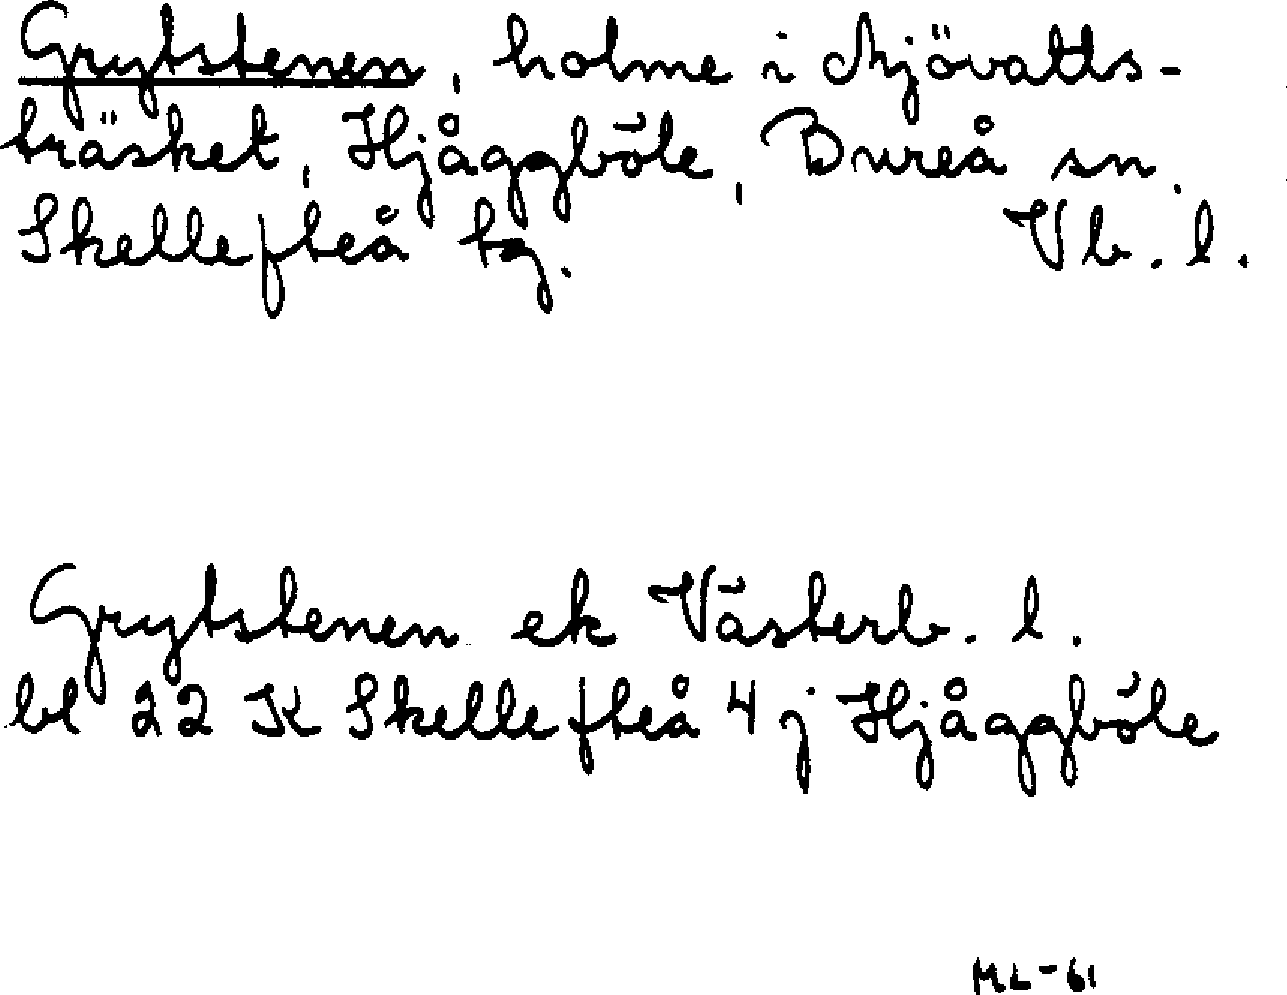 Grytstenen, holme i Mjövatts-
träsket, Hjåggböle, Bureå sn.
Skellefteå tg. Vb. l.
Grytstenen ek Västerb. l.
bl 22 K Skellefteå 4 j Hjåggböle
ML-61